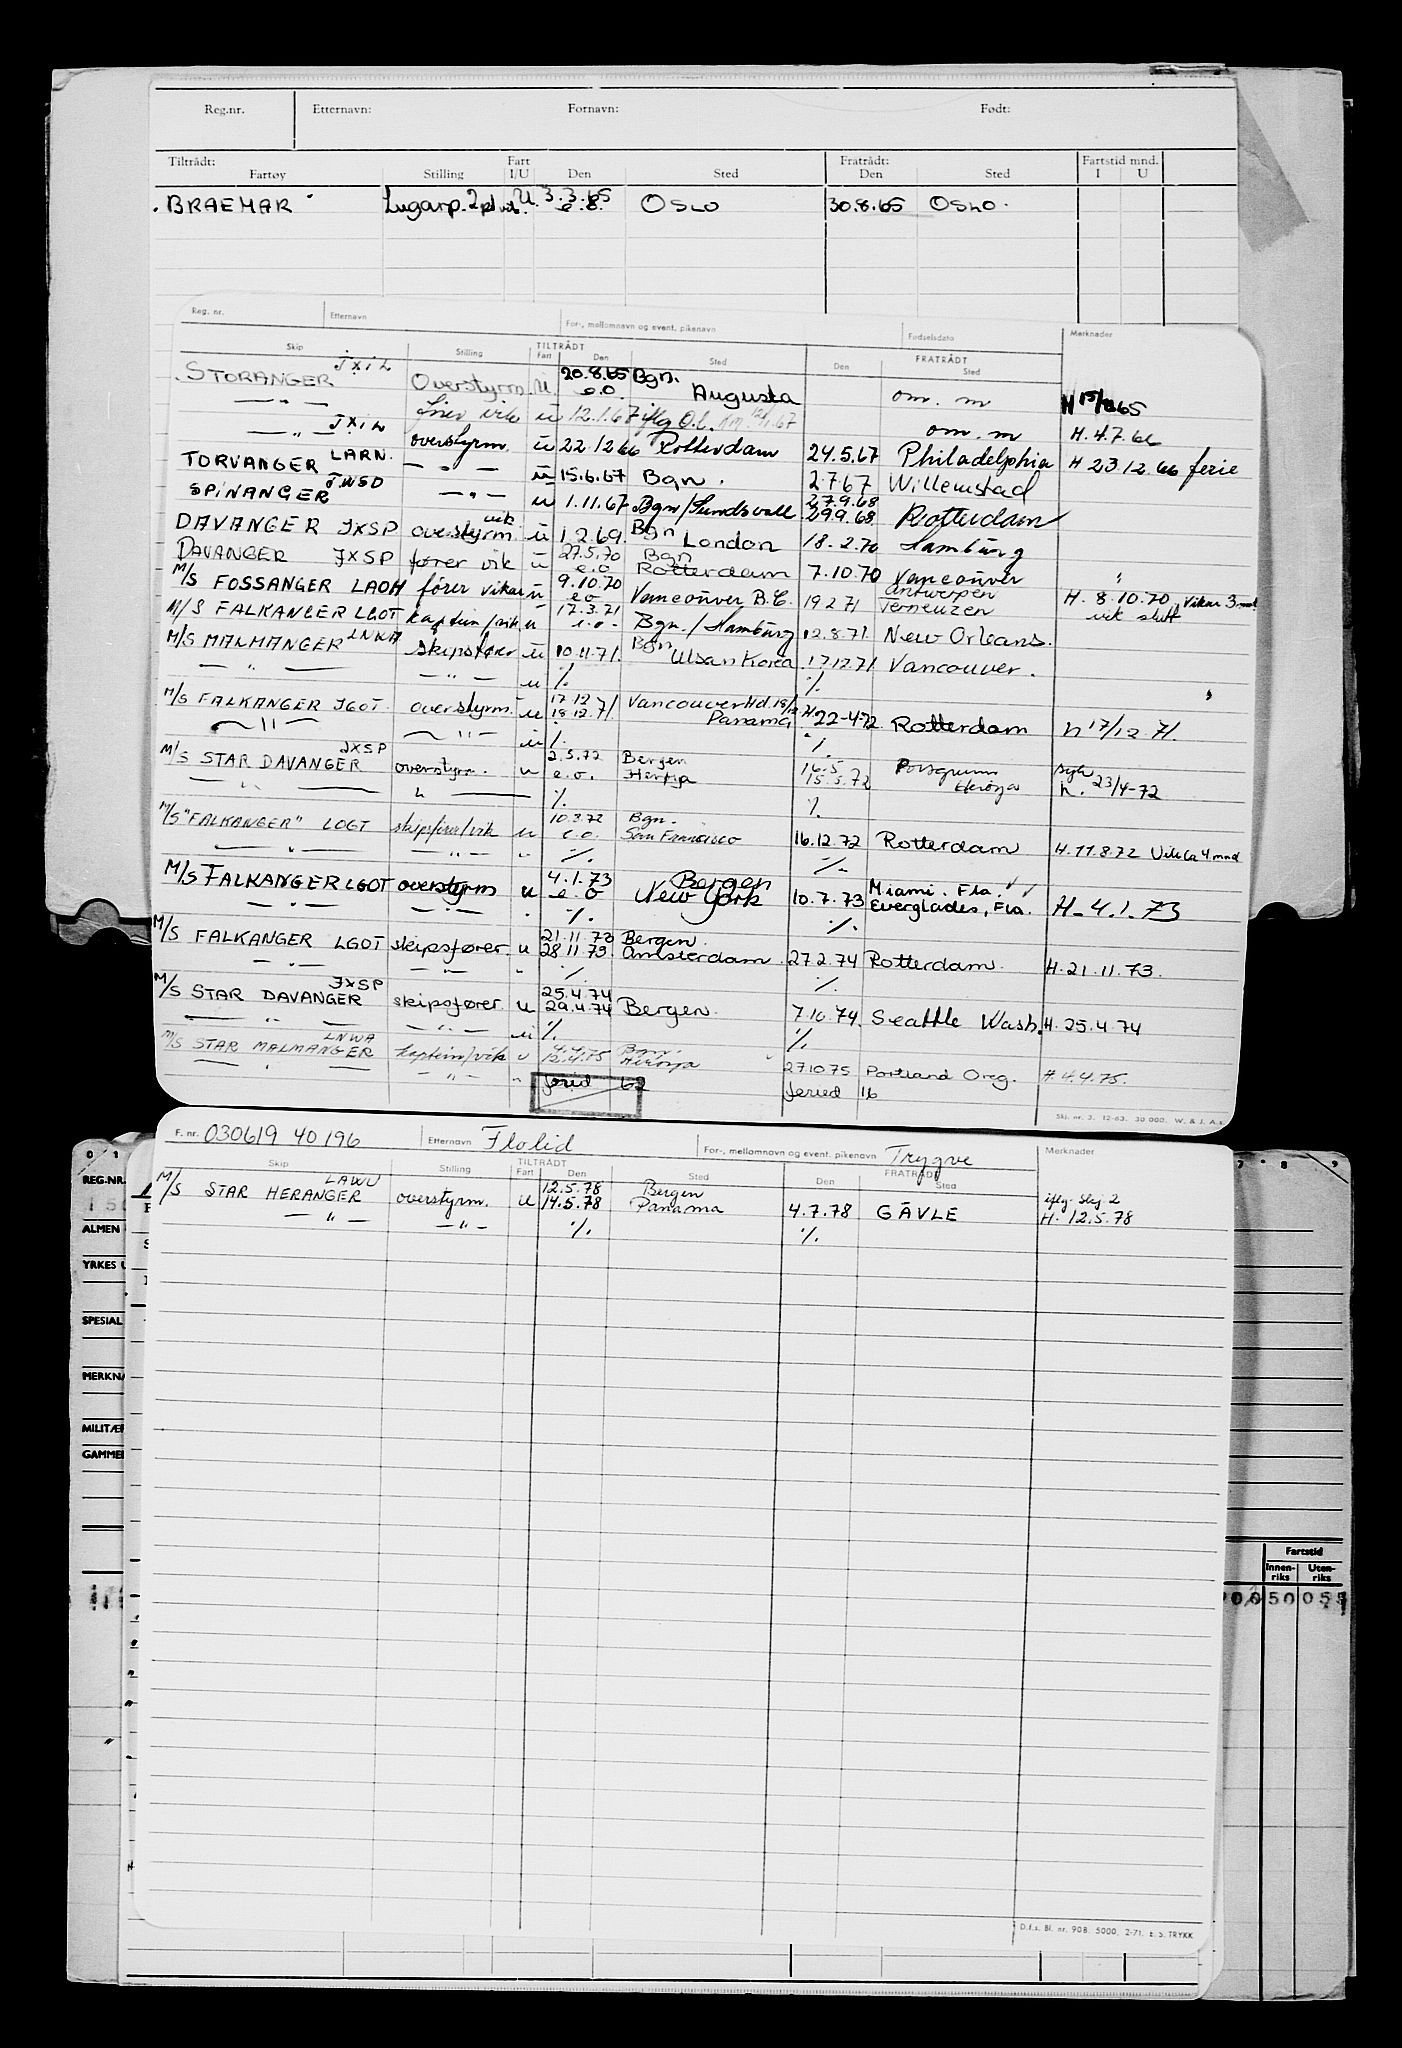 Reg.nr. Etternavn: Fornavn: Født:
Tiltrådt: Fart Fratrådt: Fartstid mnd.
Fartøy Stilling I/U Den Sted Den Sted I U
BRAEMAR Lugarp. U 3.3.65 OSLO 30.8.65 OSLO
Reg. nr. Etternavn For-, mellomnavn og event. pikenavn Fødselsdato Merknader
TILTRÅDT FRATRÅDT
Skip Stilling Fart Den Sted Den Sted
STORANGER JXIL Overstyrm. U 20.8.65 Bgn.
— " — e.o. Augusta om. m H 15/8 65
fører vik u 12.1.67 iflg O.l. om. m H. 4.7.66
— " — JXIL overstyrm. u 22.12 66 Rotterdam 24.5.67 Philadelphia H 23.12.66 ferie
TORVANGER LARN. — " — u 15.6.67 Bgn. 2.7.67 Willemstad
SPINANGER JWSD — " — u 1.11.67 Bgn/Sundsvall 27.9.68 29.9.68 Rotterdam
DAVANGER JXSP overstyrm. vik u 1.2.69. Bgn London 18.2.70 Hamburg
DAVANGER JXSP fører vik u 27.5.70 e.o Bgn Rotterdam 7.10.70 Vancouver
M/S FOSSANGER LAOH fører vikar u 9.10.70 e.o Vancouver B.C. 19.2.71 Antwerpen Terneuzen H. 8.10.70, Vikar 3 mnd vik slutt
M/S FALKANGER LGOT kaptein/vik u 17.3.71 e.o. Bgn./Hamburg 12.8.71. New Orleans.
M/S MALMANGER LNWA skipsfører u 10.11.71. Bgn Ulsan Korea 17.12.71 Vancouver.
— " — — " — u ٪. ٪.
M/S FALKANGER JGOT. overstyrm. u 17.12 71 18.12.71. Vancouver Hd. 18/12 Panama H 22-4-72 Rotterdam h 17/12.71.
— " — — " — u ٪. ٪.
M/S STAR DAVANGER JXSP overstyrm. u 2.5.72 e.o. Bergen Herøya 16.5 15.5.72 Porsgrunn Herøya syk h. 23/4-72
— " — — " — ٪. ٪.
M/S "FALKANGER" LOGT skipsfører/vik u 10.3.72 e.o. Bgn. San Francisco 16.12.72 Rotterdam H. 11.8.72 Vik ca 4 mnd
— " — — " — " ٪. ٪.
M/S FALKANGER LGOT overstyrm u 4.1.73 e.o Bergen New York 10.7.73 Miami. Fla. Everglades, Fla. H. 4.1.73
— " — — " — ٪. ٪.
M/S FALKANGER LGOT skipsfører. u 21.11.73 28.11.73. Bergen. Amsterdam. 27.2.74 Rotterdam. H. 21.11.73.
— " — — " — " ٪. ٪.
M/S STAR DAVANGER JXSP skipsfører. u 25.4.74 29.4.74 Bergen. 7.10.74. Seattle Wash. H. 25.4.74
— " — — " — u ٪. ٪.
M/S STAR MALMANGER LNWA kaptein/vik u 4.4.75 12.4.75 Bgn. Herøya 27.10.75 Portland Oreg. H. 4.4.75.
— " — — " — " feried 62 feried 16
Skj. nr. 3. 12-63. 30 000. W. & S. A.s
F. nr. 030619 40196 Etternavn Flolid For-, mellomnavn og event. pikenavn Trygve Merknader
TILTRÅDT FRATRÅDT
Skip Stilling Fart Den Sted Den Sted
M/S STAR HERANGER LAWU overstyrm. u 12.5.78 14.5.78 Bergen Panama 4.7.78 GÄVLE iflg. skj. 2 H. 12.5.78
— " — — " — ٪. ٪.
D.f.s. Bl. nr. 908. 5000. 2-71. E. S. TRYKK
0 1 7 8 9
REG.NR.
ALMEN
YRKES U
SPESIAL
MERKNA
MILITÆR
GAMMEL
Fartstid
Innenriks Utenriks